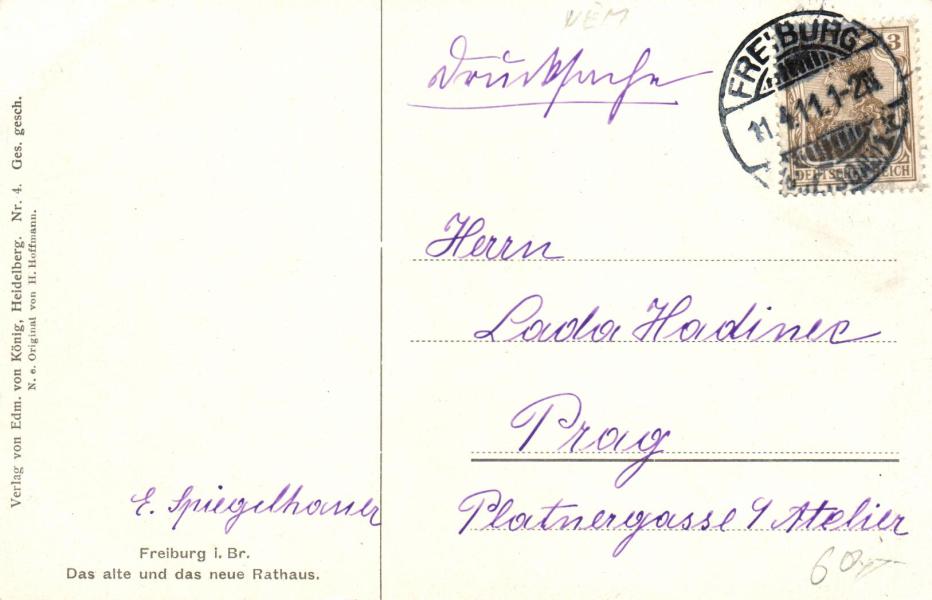 NĚM
Drucksache
FREIBURG
11.4.11.1-2N.
3
DEUTSCHES REICH
Herrn
Lada Hadinec
Prag
Platnergasse 9 Atelier
60,-
E. Spiegelhauer
Freiburg i. Br.
Das alte und das neue Rathaus.
Verlag von Edm. von König, Heidelberg. Nr. 4. Ges. gesch.
N. e. Original von H. Hoffmann.